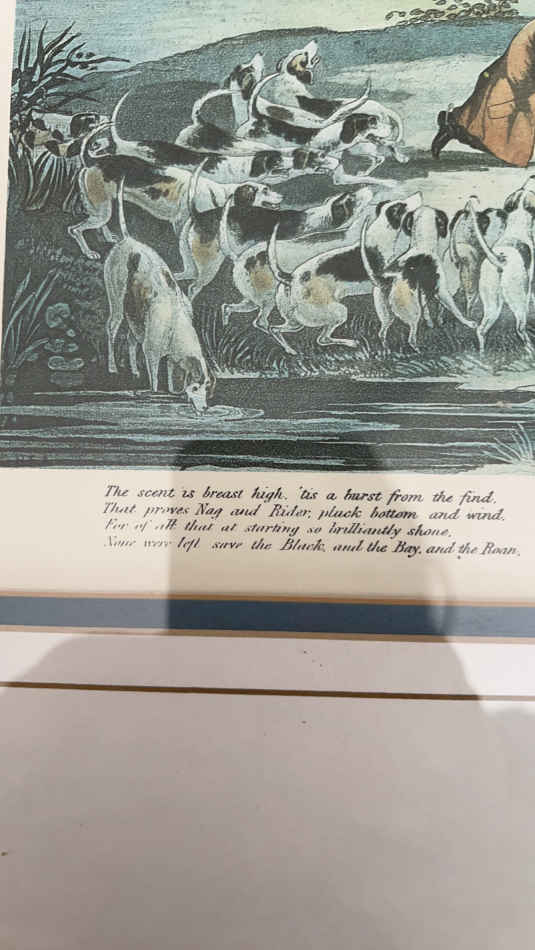 The scent is breast high, 'tis a burst from the find,
That proves Nag and Rider, pluck bottom and wind.
For of all that at starting so brilliantly shone,
None were left save the Black, and the Bay, and the Roan,